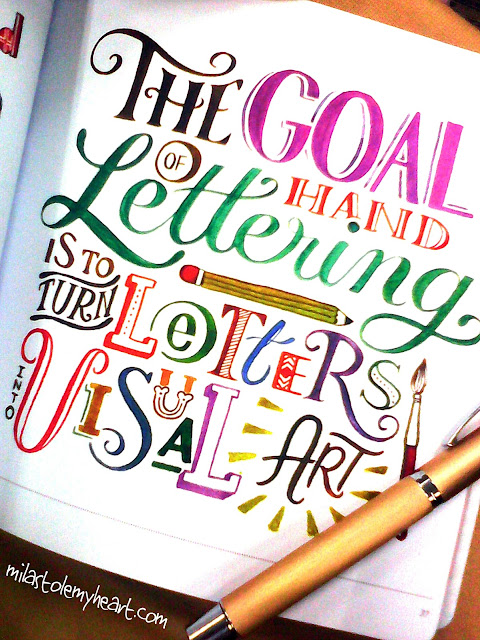 THE GOAL
OF HAND
Lettering
IS TO
TURN LETTERS
INTO VISUAL ART
milastolemyheart.com